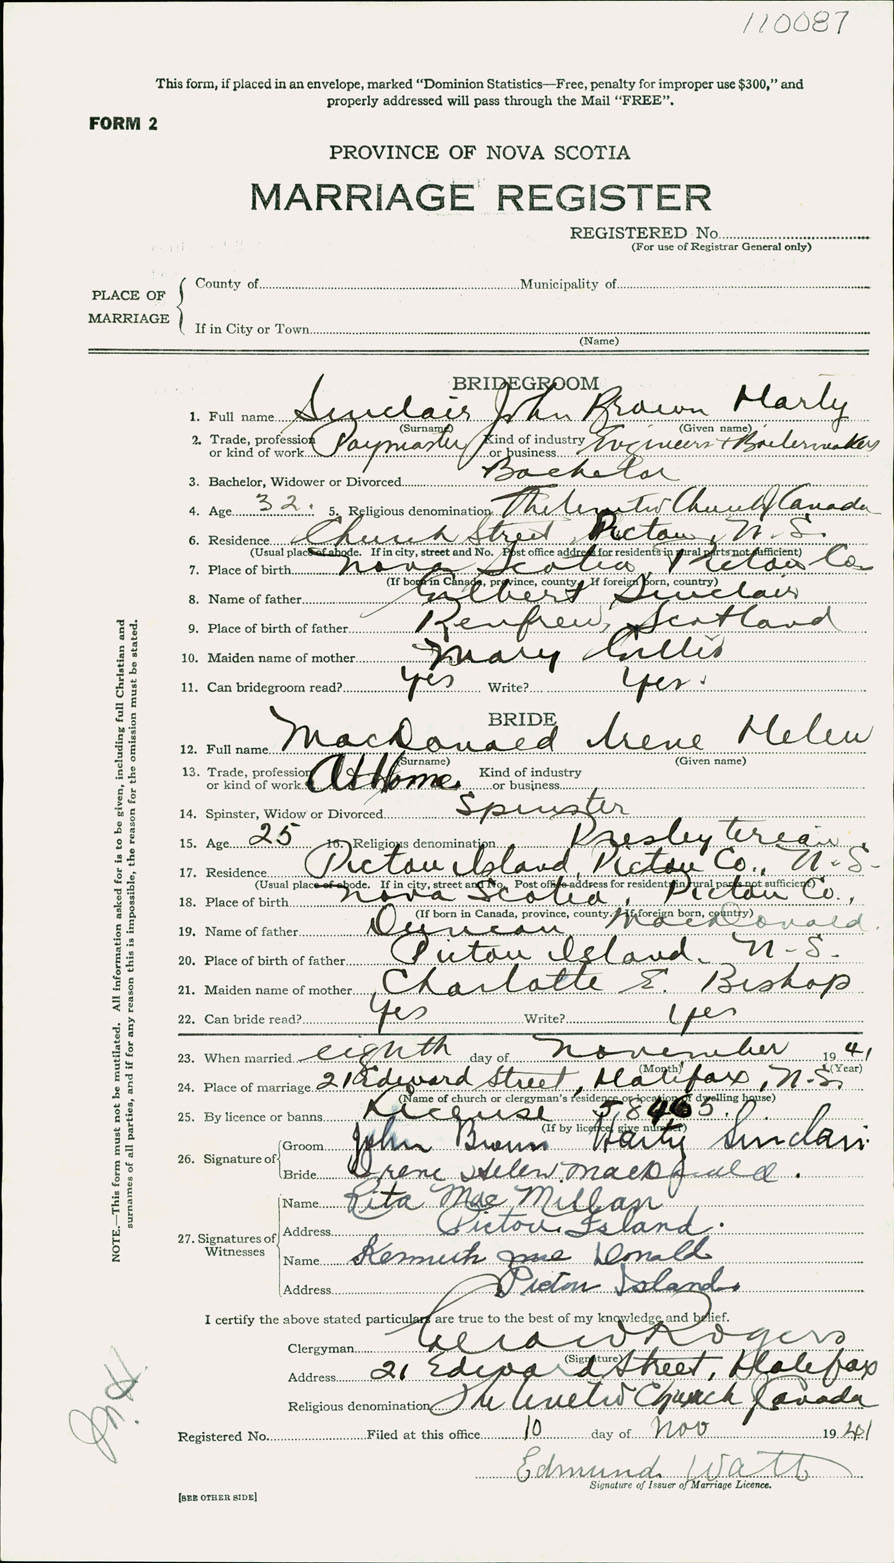 110087
This form, if placed in an envelope, marked “Dominion Statistics—Free, penalty for improper use $300,” and
properly addressed will pass through the Mail “FREE”.
FORM 2
PROVINCE OF NOVA SCOTIA
MARRIAGE REGISTER
REGISTERED No.
(For use of Registrar General only)
PLACE OF MARRIAGE
County of Municipality of
If in City or Town
(Name)
BRIDEGROOM
1. Full name Sinclair John Brown Harty
(Surname) (Given name)
2. Trade, profession or kind of work Paymaster Kind of industry or business Engineers & Boilermakers
3. Bachelor, Widower or Divorced Bachelor
4. Age 32. 5. Religious denomination The United Church of Canada
6. Residence Church Street Pictou, N.S.
(Usual place of abode. If in city, street and No. Post office address for residents in rural parts not sufficient)
7. Place of birth Nova Scotia, Pictou Co
(If born in Canada, province, county. If foreign born, country)
8. Name of father Gilbert Sinclair
9. Place of birth of father Renfrew, Scotland
10. Maiden name of mother Mary Gillis
11. Can bridegroom read? Yes Write? Yes.
BRIDE
12. Full name MacDonald Irene Helen
(Surname) (Given name)
13. Trade, profession or kind of work At Home. Kind of industry or business
14. Spinster, Widow or Divorced Spinster
15. Age 25 16. Religious denomination Presbyterian
17. Residence Pictou Island, Pictou Co., N.S.
(Usual place of abode. If in city, street and No. Post office address for residents in rural parts not sufficient)
18. Place of birth Nova Scotia, Pictou Co.,
(If born in Canada, province, county. If foreign born, country)
19. Name of father Duncan MacDonald.
20. Place of birth of father Pictou Island, N.S.
21. Maiden name of mother Charlotte E. Bishop
22. Can bride read? Yes Write? Yes
23. When married eighth day of November 1941
(Month) (Year)
24. Place of marriage 21 Edward Street, Halifax, N.S.
(Name of church or clergyman's residence or location of dwelling house)
25. By licence or banns License 58465.
(If by licence, give number)
26. Signature of Groom John Brown Harty Sinclair
Bride Irene Helen MacDonald.
27. Signatures of Witnesses
Name Rita MacMillan
Address Pictou Island.
Name Kenneth MacDonald
Address Pictou Island.
I certify the above stated particulars are true to the best of my knowledge and belief.
Clergyman Gerald Rogers
(Signature)
Address 21 Edward Street, Halifax
Religious denomination The United Church of Canada
Registered No. Filed at this office 10 day of Nov 1941
Edmund Watt
Signature of Issuer of Marriage Licence.
[SEE OTHER SIDE]
NOTE.—This form must not be mutilated. All information asked for is to be given, including full Christian and
surnames of all parties, and if for any reason this is impossible, the reason for the omission must be stated.